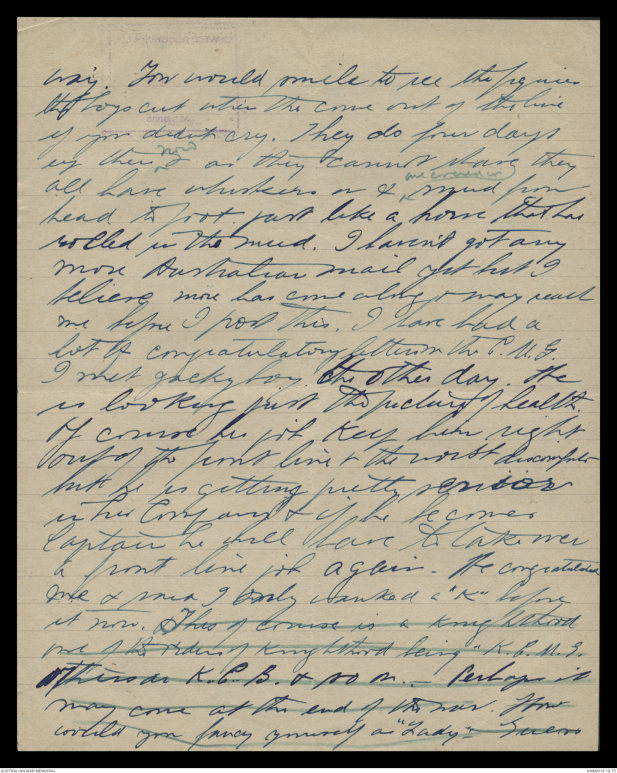 way. You would smile to see the figures
the boys cut when the come out of the line
if you didn't cry. They do four days
in there now & as they cannot shave they
all have whiskers on & are covered in mud from
head to foot just like a horse that has
rolled in the mud. I haven't got any
more Australian mail yet but I
believe more has come along & may reach
me before I post this. I have had a
lot of congratulatory letters on the C.M.G.
I met Jacky boy the other day. He
is looking just the picture of health.
Of course his job keep him right
out of the front line & the worst discomforts
but he is getting pretty senior
in his Company & if he becomes
Captain he will have to take over
a front line job again. He congratulated
me & said I only wanted a "K" before
it now. This of course is a knighthood
one of the orders of knighthood being "K.C.M.G.
others are K.C.B. & so on. - Perhaps it
may come at the end of the war. How
would you fancy yourself as "Lady"
AUSTRALIAN WAR MEMORIAL